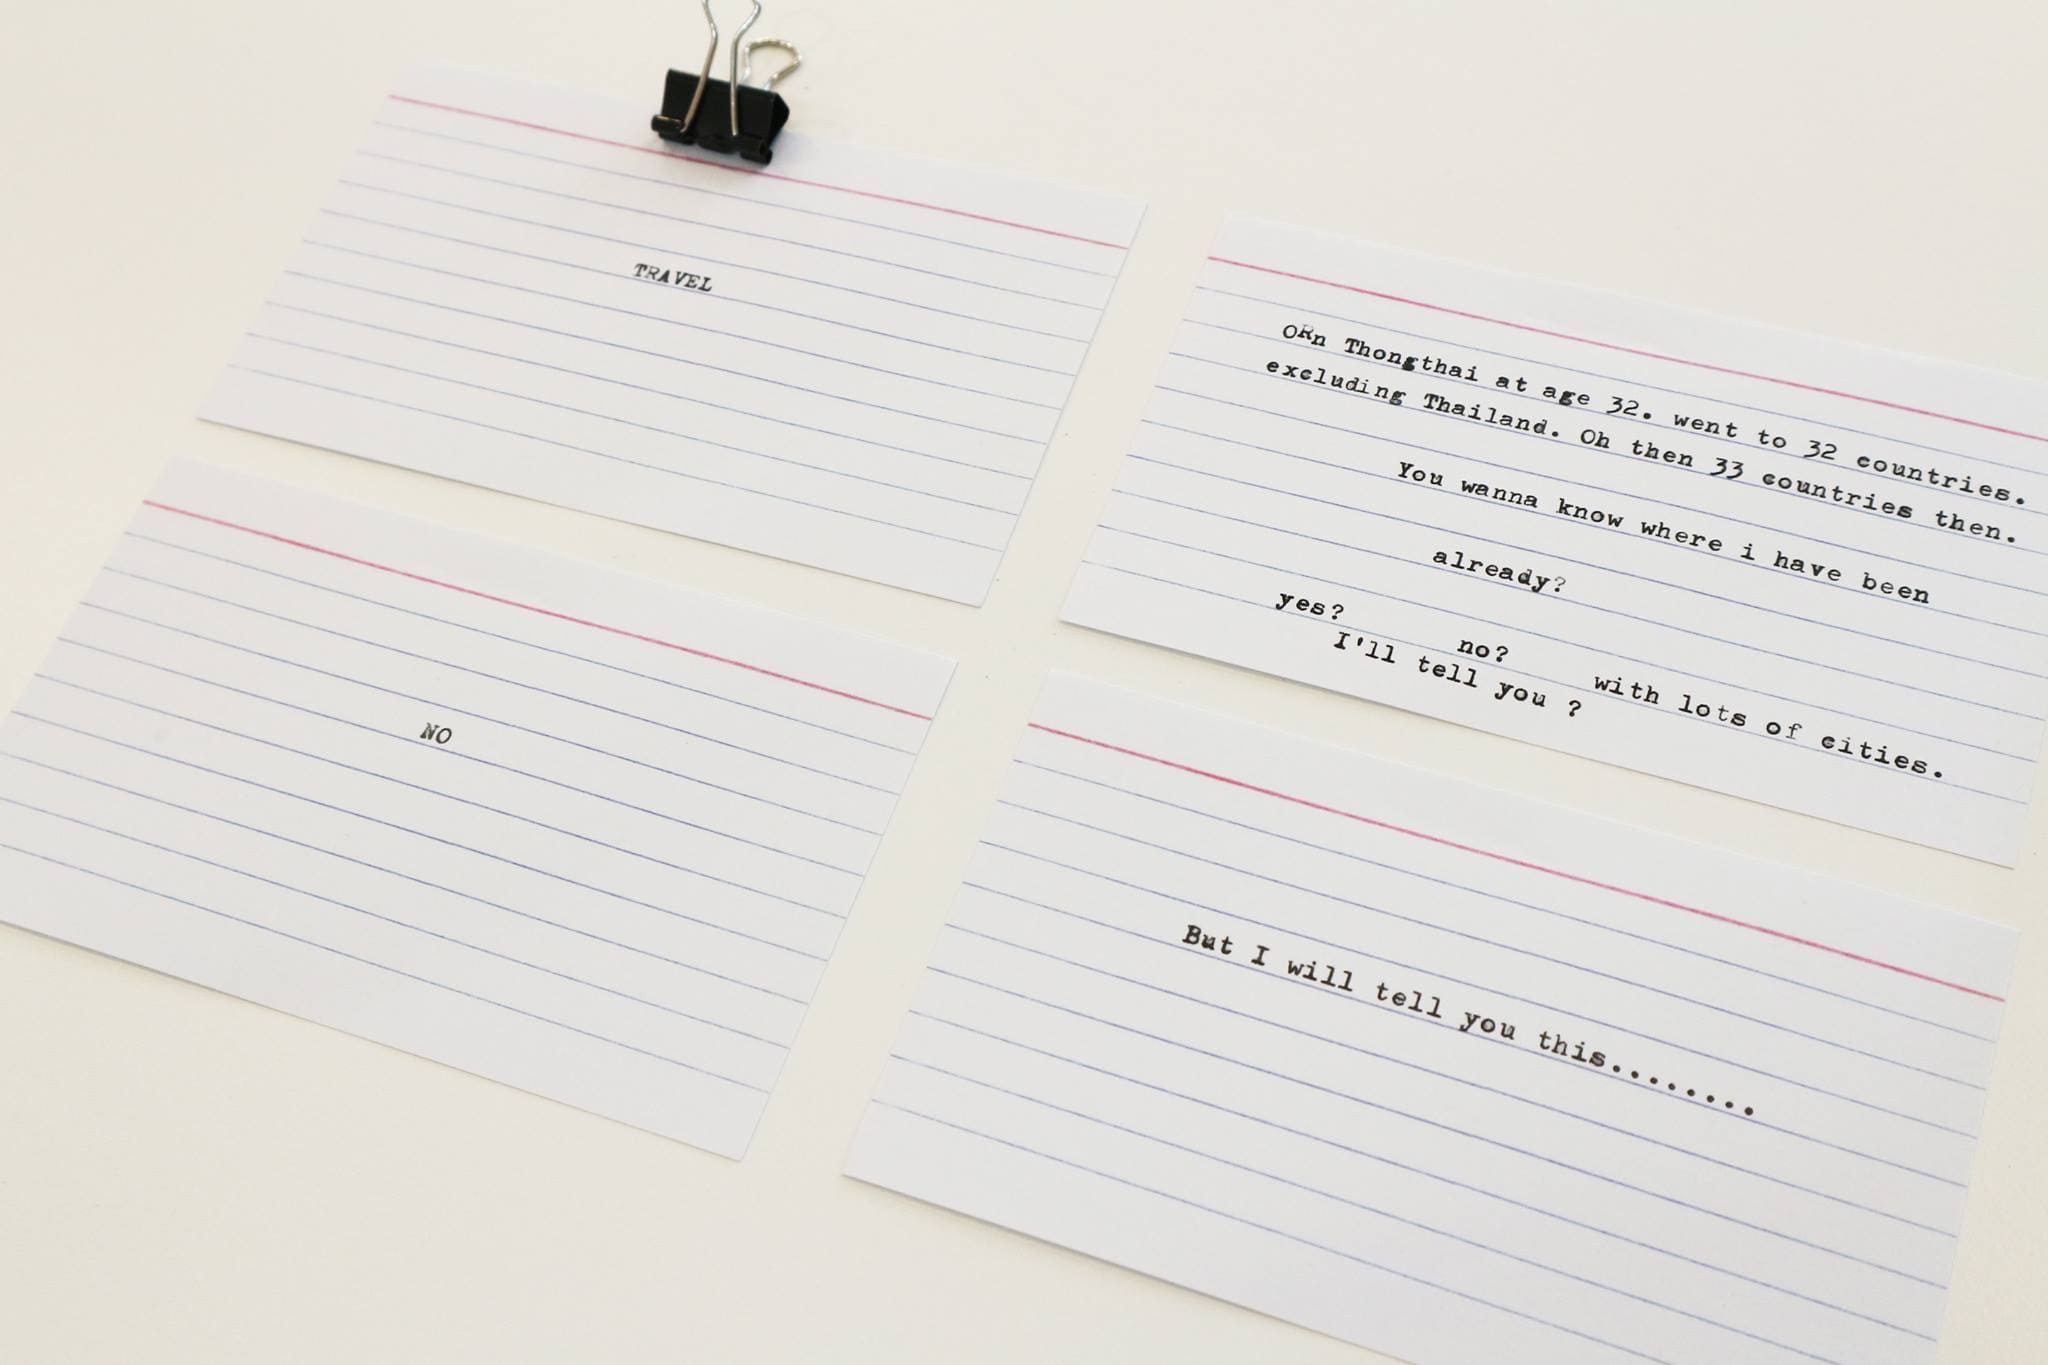 TRAVEL
ORn Thongthai at age 32. went to 32 countries.
excluding Thailand. Oh then 33 countries then.
You wanna know where i have been
already?
yes? no? with lots of cities.
I'll tell you ?
NO
But I will tell you this........